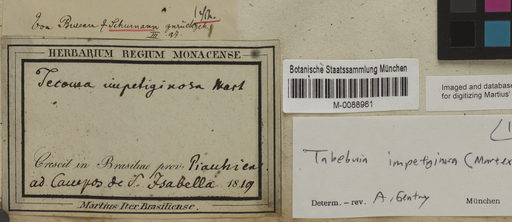 Von Bureau & Schumann zurückgek.
HERBARIUM REGIUM MONACENSE
Tecoma impetiginosa Mart
Crescit in Brasiliae prov. Piauhien.
ad Campos de S. Isabella 1819
Martius Iter Brasiliense.
Botanische Staatssammlung München
M-0088961
Imaged and database
for digitizing Martius'
Tabebuia impetiginosa (Mart. ex
Determ. – rev. A. Gentry München